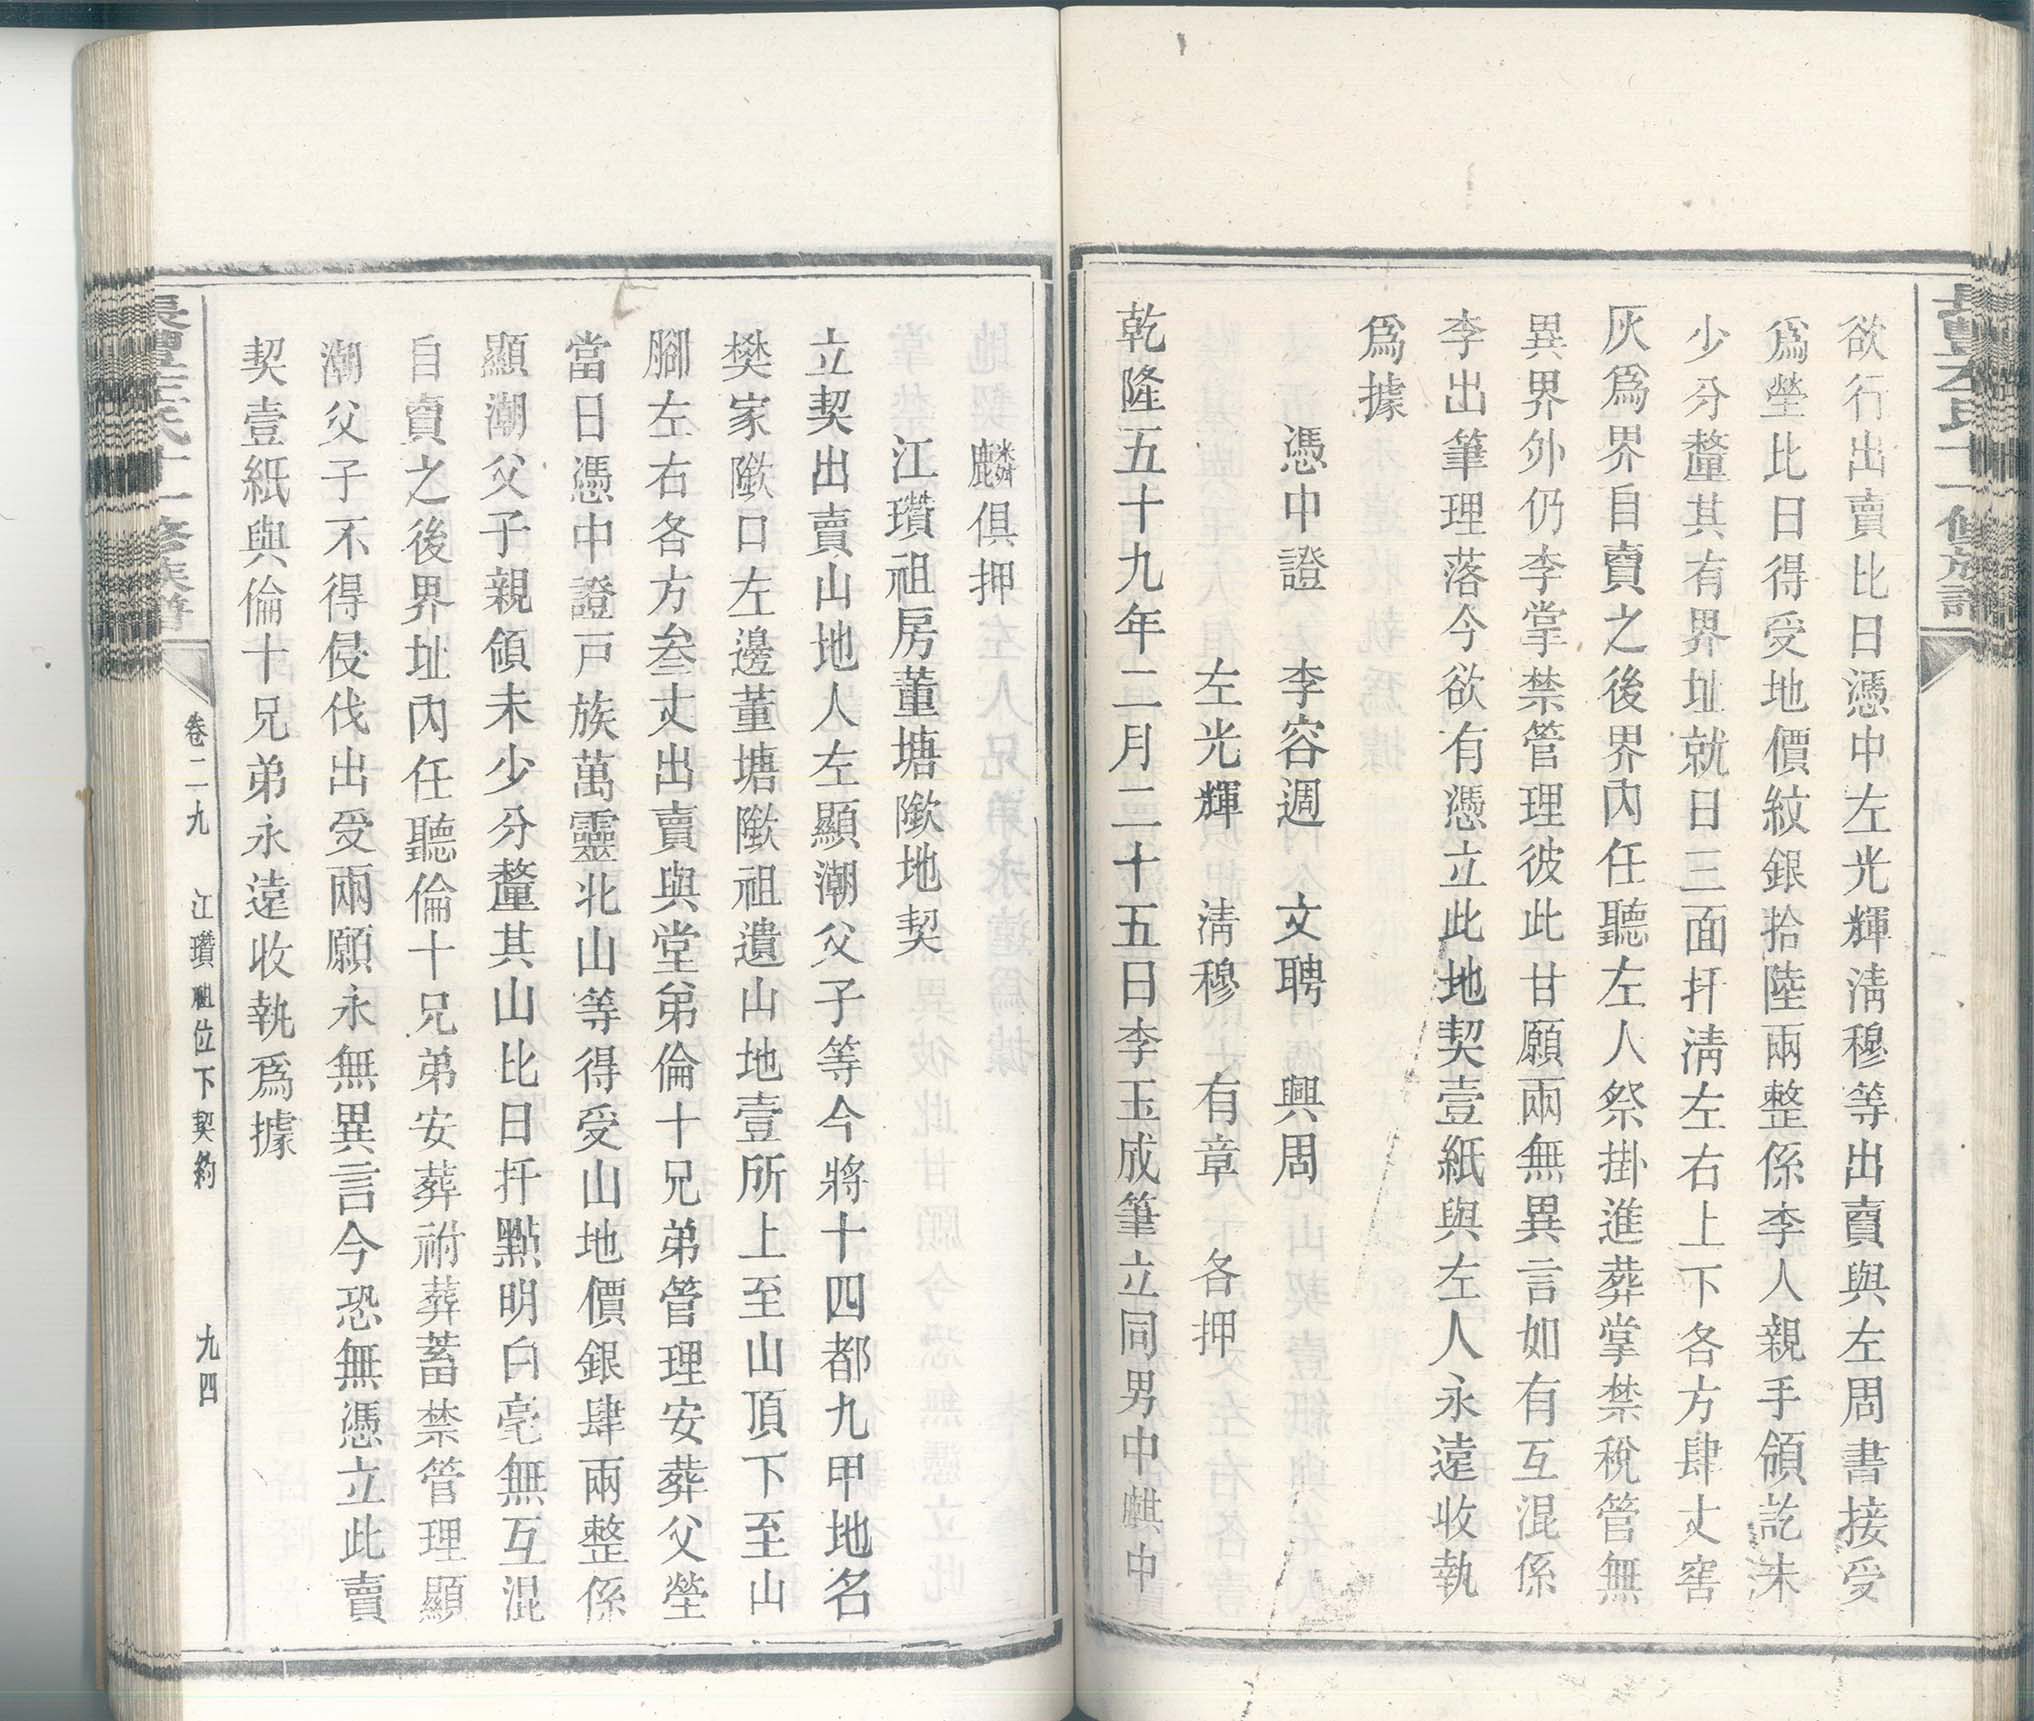 欲行出賣比日憑中左光輝淸穆等出賣與左周書接受
爲塋比日得受地價紋銀拾陸兩整係李人親手領訖未
少分釐其有界址就日三面扦淸左右上下各方肆丈窖
灰爲界自賣之後界內任聽左人祭掛進葬掌禁稅管無
異界外仍李掌禁管理彼此甘願兩無異言如有互混係
李出筆理落今欲有憑立此地契壹紙與左人永遠收執
爲據
憑中證 李容週 文聘 興周
左光輝 淸穆 有章 各押
乾隆五十九年二月二十五日李玉成筆立同男中麒中
麟俱押
江瓚祖房董塘隞地契
立契出賣山地人左顯潮父子等今將十四都九甲地名
樊家隞口左邊董塘隞祖遺山地壹所上至山頂下至山
腳左右各方叁丈出賣與堂弟倫十兄弟管理安葬父塋
當日憑中證戸族萬靈北山等得受山地價銀肆兩整係
顯潮父子親領未少分釐其山比日扦點明白毫無互混
自賣之後界址內任聽倫十兄弟安葬祔葬蓄禁管理顯
潮父子不得侵伐出受兩願永無異言今恐無憑立此賣
契壹紙與倫十兄弟永遠收執爲據
卷二九 江瓚祖位下契約 九四